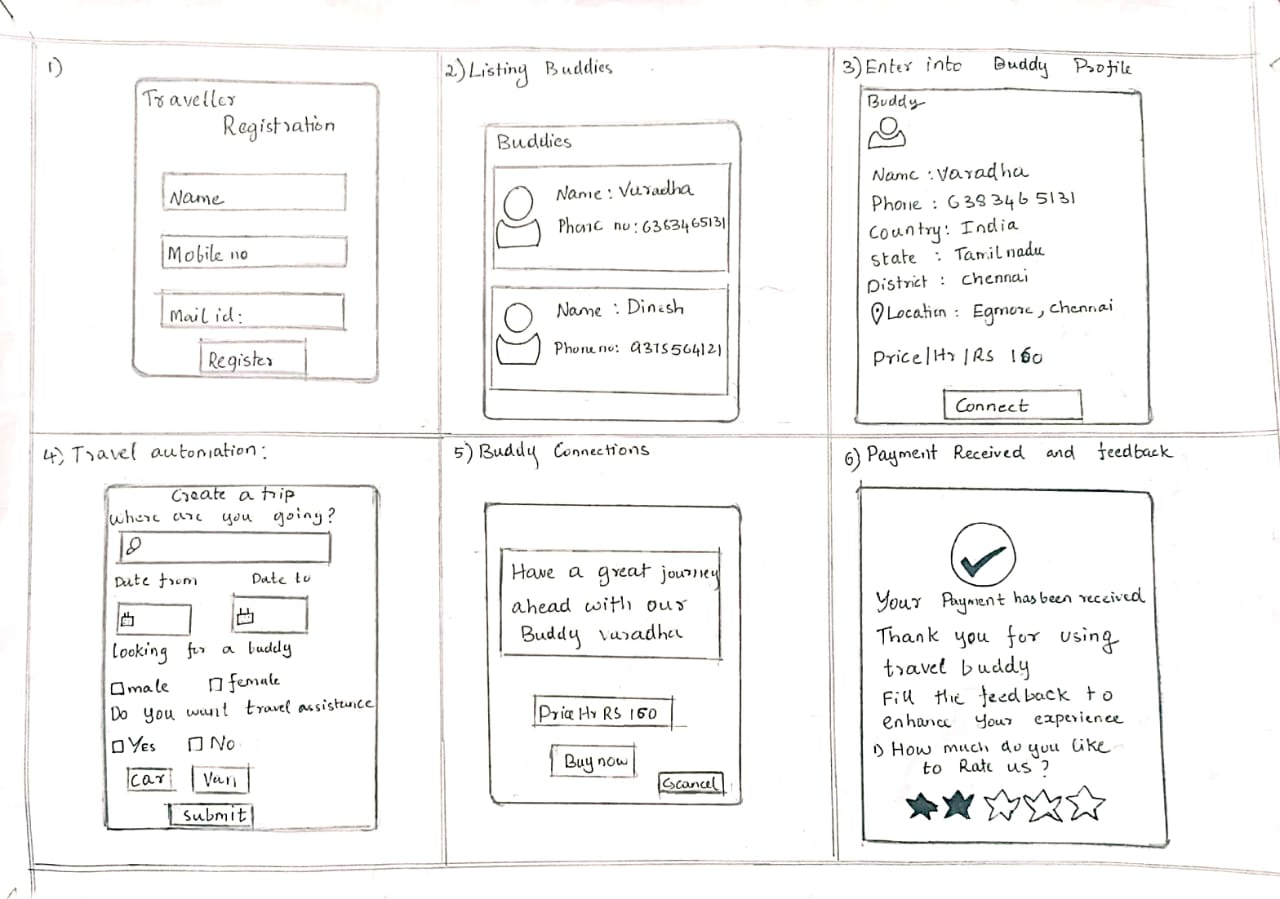 1)
Traveller
Registration
Name
Mobile no
Mail id:
Register
2) Listing Buddies
Buddies
Name : Varadha
Phone no : 6383465131
Name : Dinesh
Phone no: 9375564121
3) Enter into Buddy Profile
Buddy
Name : Varadha
Phone : 6383465131
Country: India
State : Tamil nadu
District : Chennai
Location : Egmore, Chennai
Price/Hr/RS 160
Connect
4) Travel automation:
Create a trip
where are you going?
Date from Date to
Looking for a buddy
male female
Do you want travel assistance
Yes No
Car Van
Submit
5) Buddy Connections
Have a great journey
ahead with our
Buddy varadha
Price Hr RS 160
Buy now
cancel
6) Payment Received and feedback
Your Payment has been received
Thank you for using
travel buddy
Fill the feedback to
enhance your experience
1) How much do you like
to Rate us ?